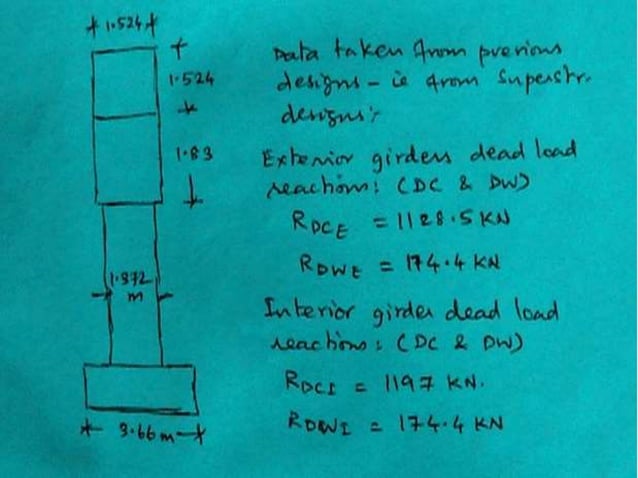 1.524
1.524
1.83
m
3.66 m
Data taken from previous
designs - ie from Superstr.
designs:
Exterior girders dead load
reactions: (DC & DW)
RDCE = 1128.5 KN
RDWE = 174.4 KN
Interior girder dead load
reactions: (DC & DW)
RDCI = 1197 KN.
RDWI = 174.4 KN